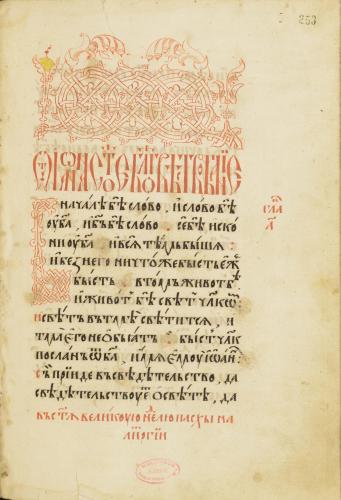 253
Ѿ іѡанна ст҃ое бл҃говѣствованїе
Вначалѣ бѣ слово, и слово бѣ
оу ба҃, и бъ҃ бѣ слово. се бѣ иско
ни оу ба҃ и всѧ тѣмь бышѧ
и без него ничтоже бысть еже
бысть. в томь живот бѣ
и живот бѣ свѣт чл҃кѡⷨ
и свѣт въ тмѣ свѣтится, и
тма его не обьат. бысть чл҃къ
послан ѿ ба҃, имѧ емоу іѡан.
съ прїиде въ свѣдѣтельство, да
свѣдѣтельствоуе ѡ свѣтѣ, да
гла
а҃
въ ст҃ꙋю великоую нлⷣю пасхы на
литоргїи